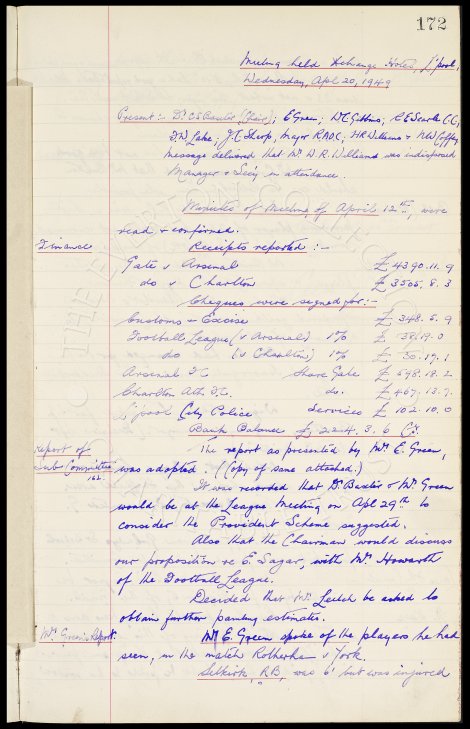 172
Meeting held Exchange Hotel, L'pool,
Wednesday, Apl 20, 1949
Present :- Dr C S Baxter (Chair); E Green; W C Gibbins, R E Searle CC;
J. C. Sharp, Major RAOC; H R Williams
message delivered that Mr. W. R. Williams was indisposed
Manager & Sec'y in attendance.
Minutes of Meeting of April 12th, were
read & confirmed.
Finance Receipts reported :-
Gate v Arsenal £ 4390. 11. 9
do v Charlton £ 3505. 8. 3
Cheques were signed for :-
Customs & Excise £ 348. 5. 9
Football League (v Arsenal) 1% £ 38. 19. 0
do (v Charlton) 1% £ 30. 19. 1
Arsenal F C Share Gate £ 598. 18. 2
Charlton Ath F.C. do. £ 467. 13. 7.
L'pool City Police Services £ 102. 10. 0
Bank Balance £ 224. 3. 6 Cr.
Report of The report as presented by Mr. E. Green,
Sub Committee was adopted. (Copy of same attached.)
162.
It was recorded that Dr. Baxter & Mr Green
would be at the League Meeting on Apl 29th to
consider the Provident Scheme suggested.
Also that the Chairman would discuss
our proposition re E. Sagar, with Mr. Howarth
of the Football League.
Decided that Mr. Leitch be asked to
obtain further painting estimates.
Mr. Green's Report. Mr E. Green spoke of the players he had
seen, in the match Rotherham v York.
Selkirk, RB, was 6' but was injured